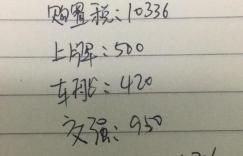 购置税：10336
上牌：500
车船：420
交强：950